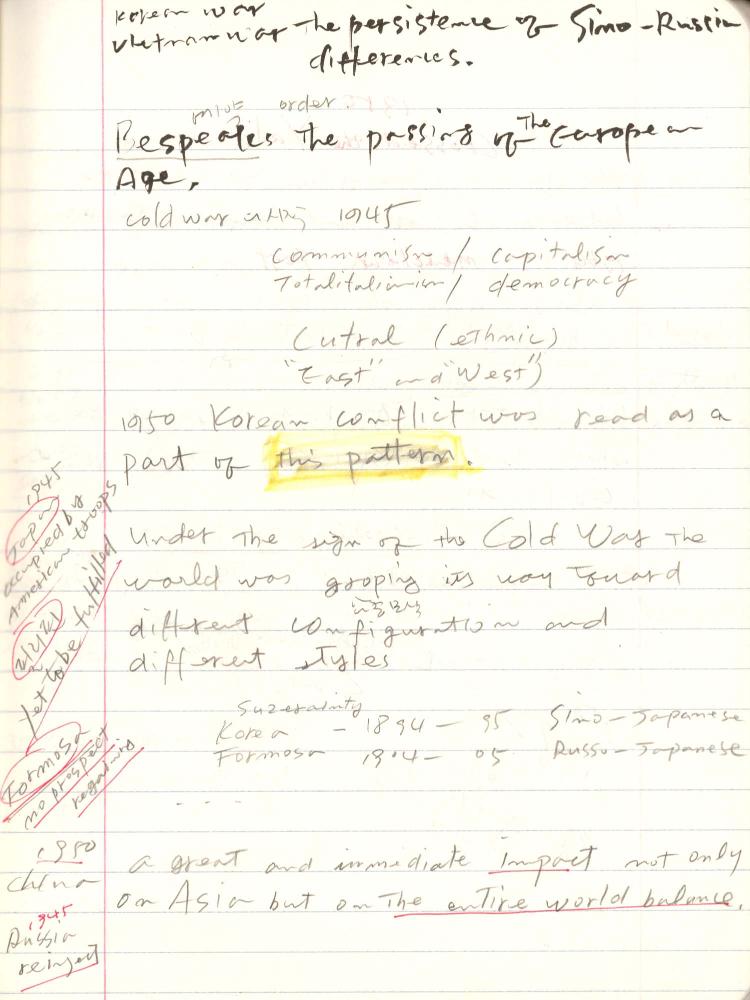 Korean war
Vietnam war the persistence of Sino-Russia
differences.
order.
Bespeakes the passing of The European
Age.
cold war 1945
Communism / capitalism
Totalitalianism / democracy
Cutral (ethnic)
"East" and "West")
1950 Korean conflict was read as a
part of this pattern.
Under The sign of the Cold War The
world was groping its way Toward
different configuration and
different styles
Suzerainty
Korea - 1894-95 Sino-Japanese
Formosa 1904-05 Russo-Japanese
- - - -
a great and immediate impact not only
on Asia but on The entire world balance.
1945
Japan
occupied by
American troops
yet to be fulfilled
Formosa
no prospect
regaining
1950
China
1945
Russia